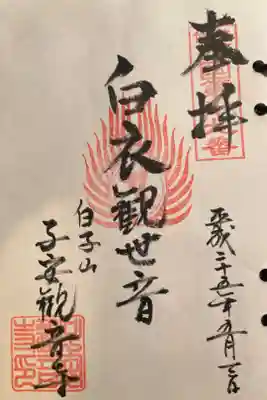 奉拝
平成二十五年五月三日
白衣観世音
白子山
子安観音寺